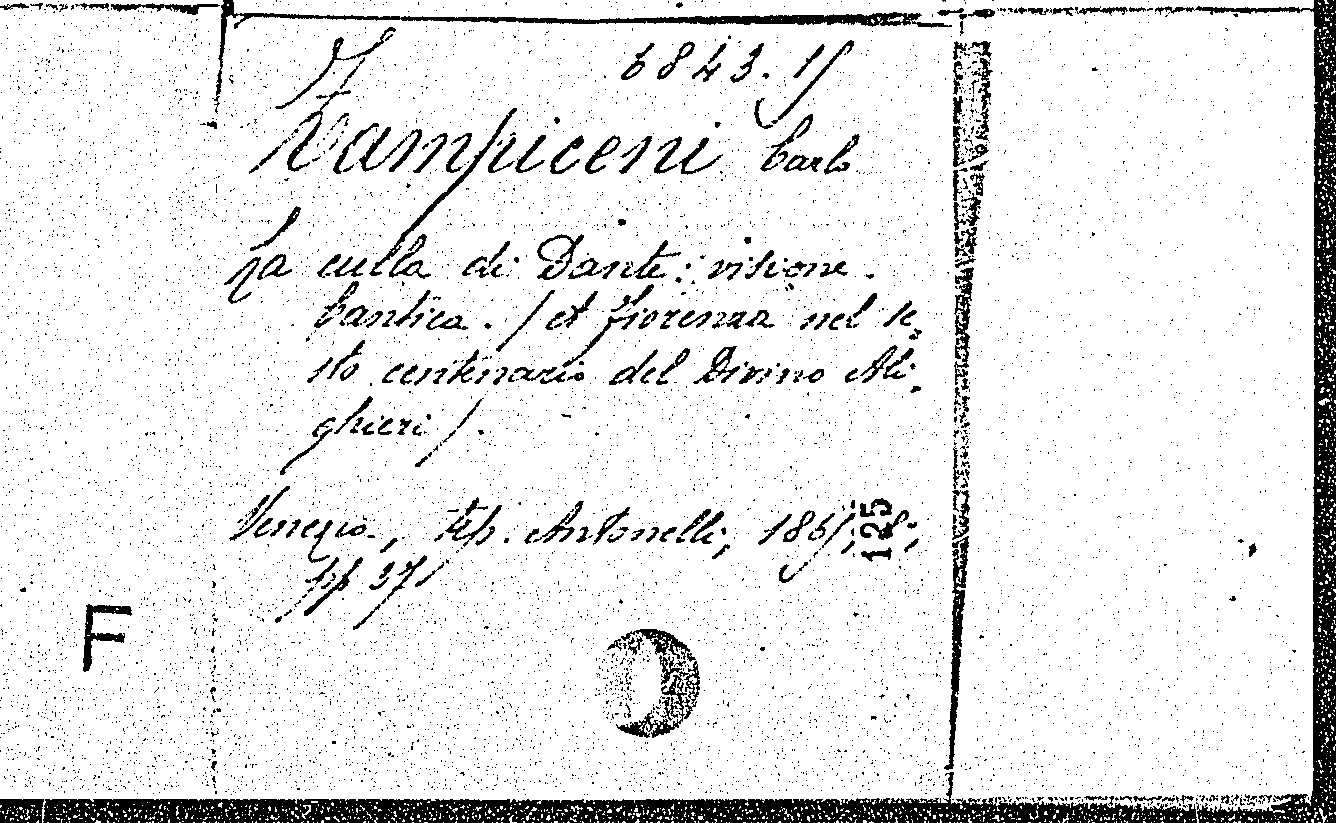 6843.15
Zampiceni Carlo
La culla di Dante: visione.
Cantica. / et Fiorenza nel se-
sto centenario del Divino Ali-
ghieri /.
Venezia, tip. Antonelli, 1865, 8;
125
pp 37
F